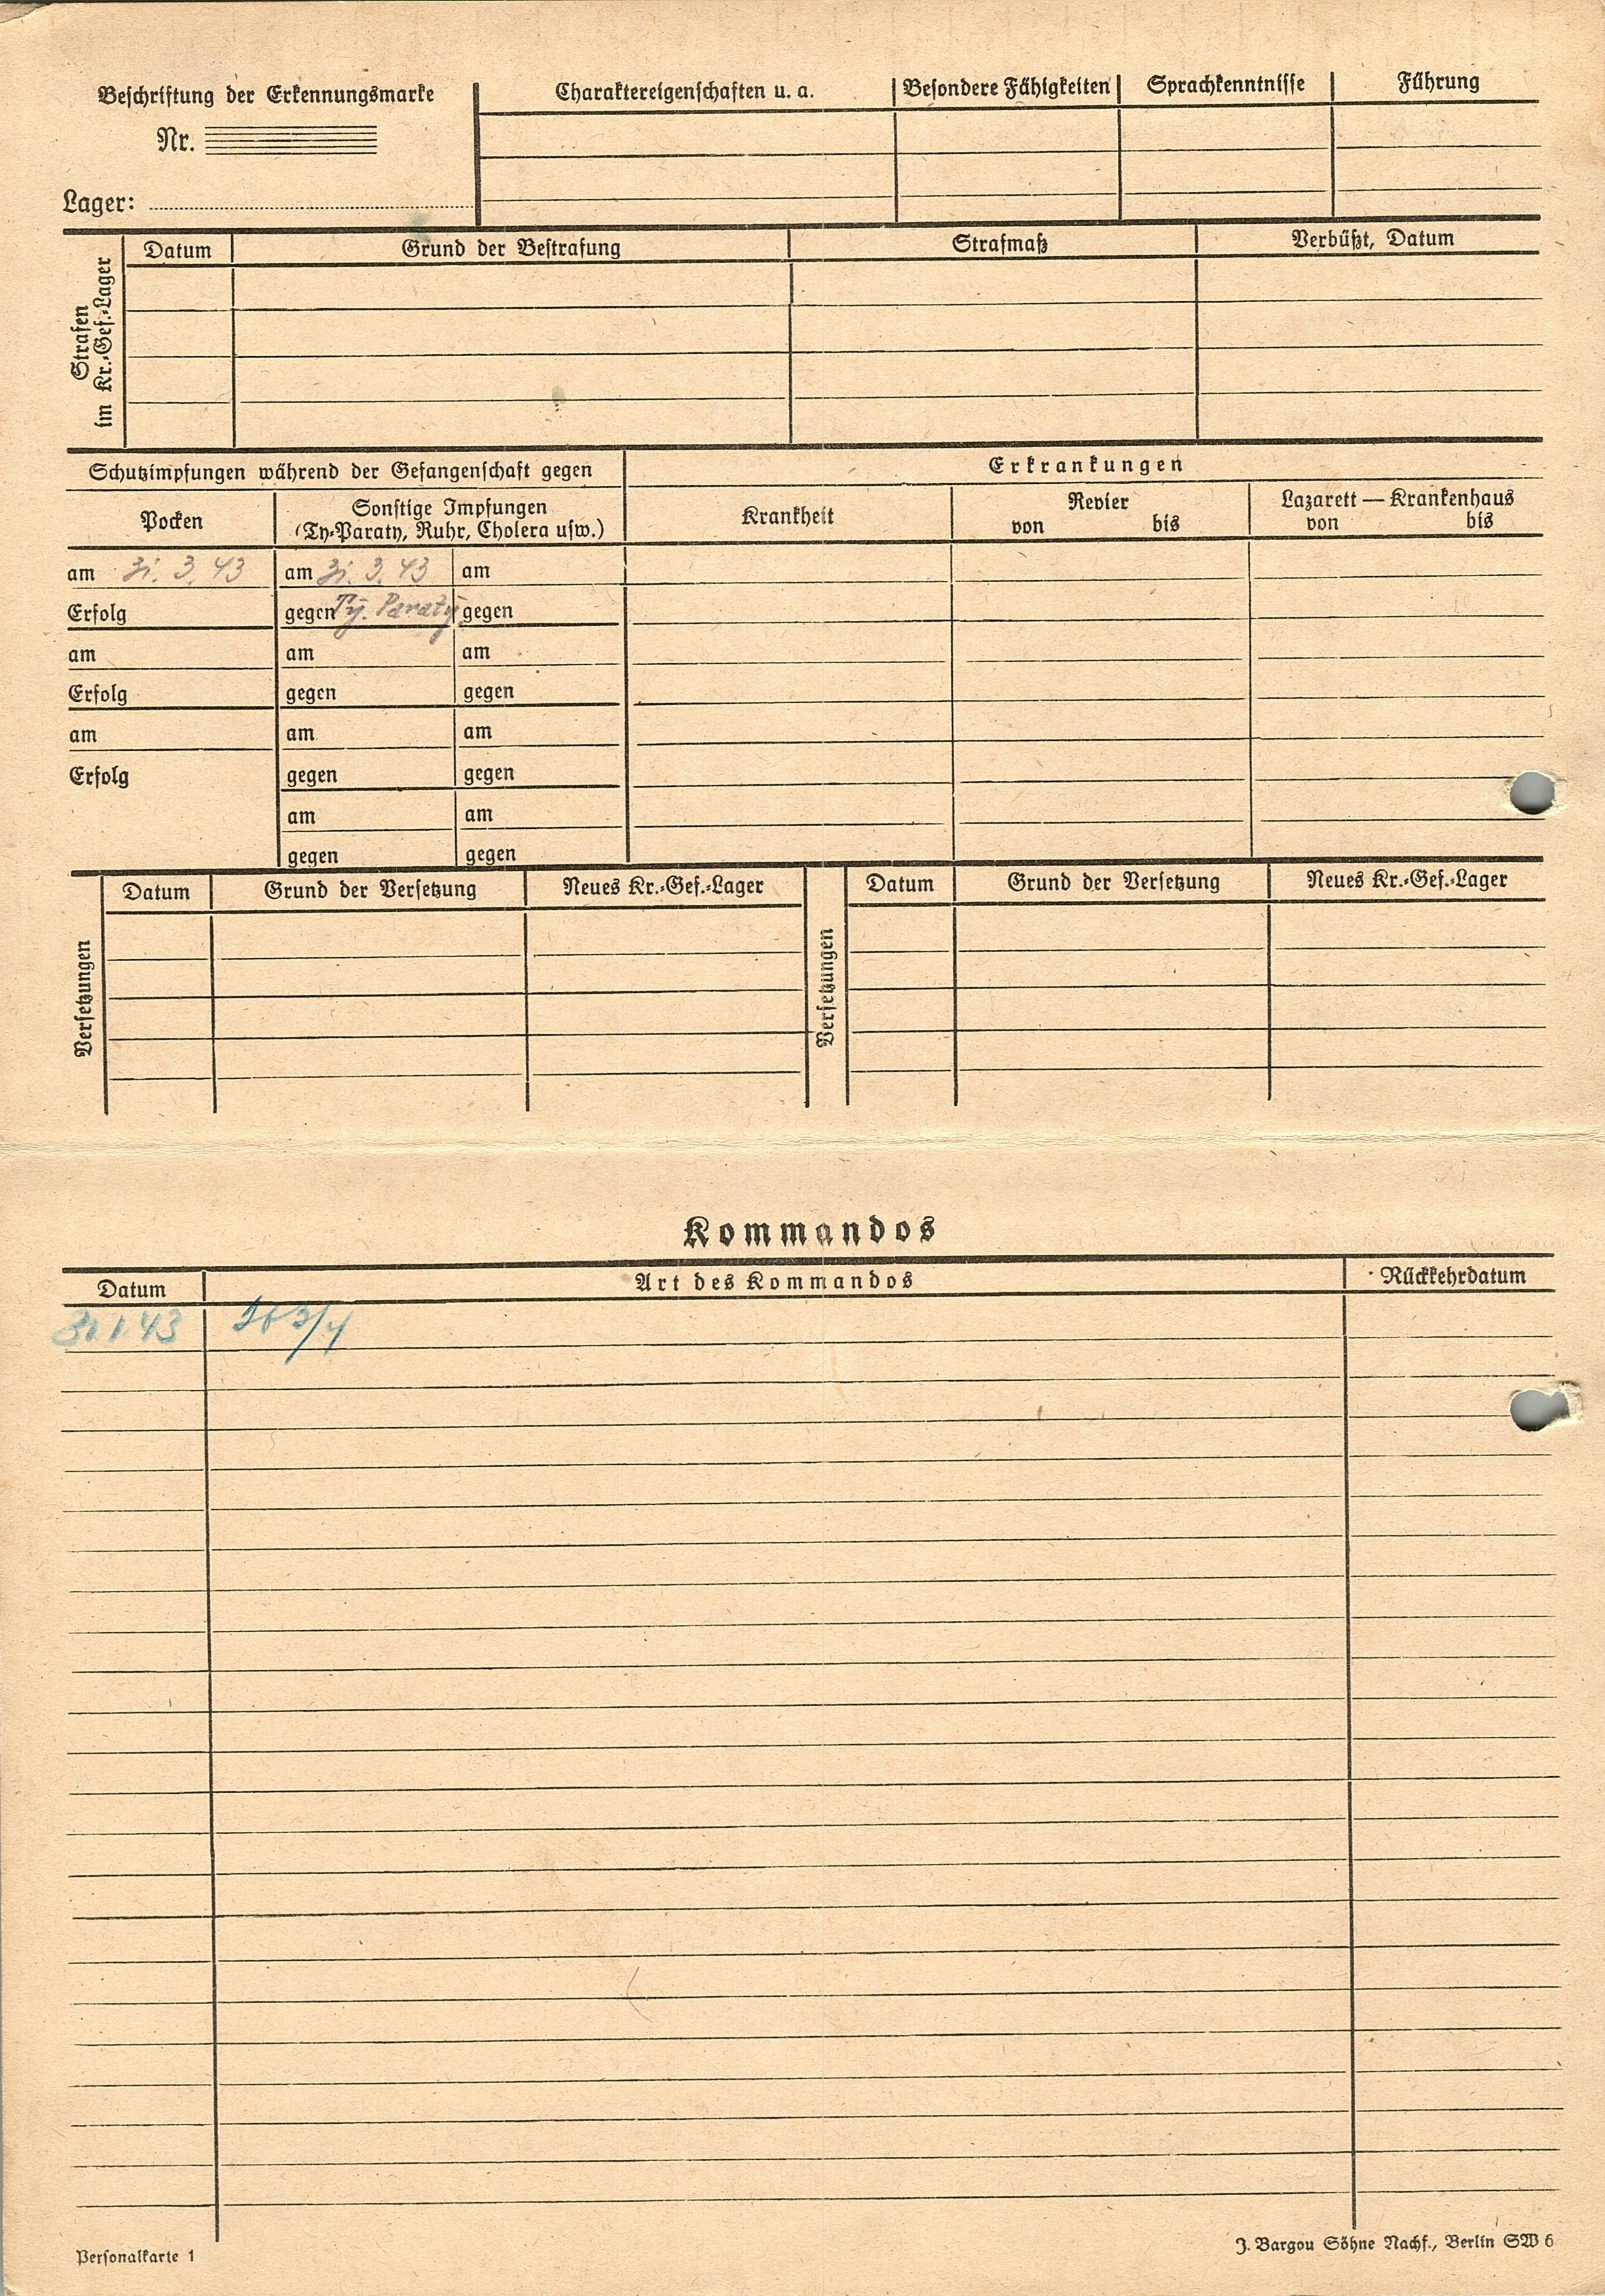 Beschriftung der Erkennungsmarke
Nr.
Lager:
Charaktereigenschaften u. a.
Besondere Fähigkeiten
Sprachkenntnisse
Führung
Strafen
im Kr.-Gef.-Lager
Datum
Grund der Bestrafung
Strafmaß
Verbüßt, Datum
Schutzimpfungen während der Gefangenschaft gegen
Pocken
Sonstige Impfungen
(Ty-Paraty, Ruhr, Cholera usw.)
am 31. 3. 43 am 31. 3. 43 am
Erfolg gegen Ty. Paraty gegen
am am am
Erfolg gegen gegen
am am am
Erfolg gegen gegen
am am
gegen gegen
Erkrankungen
Krankheit
Revier
von bis
Lazarett — Krankenhaus
von bis
Versetzungen
Datum
Grund der Versetzung
Neues Kr.-Gef.-Lager
Versetzungen
Datum
Grund der Versetzung
Neues Kr.-Gef.-Lager
Kommandos
Datum
Art des Kommandos
Rückkehrdatum
31.1.43
Personalkarte 1
J. Bargou Söhne Nachf., Berlin SW 6